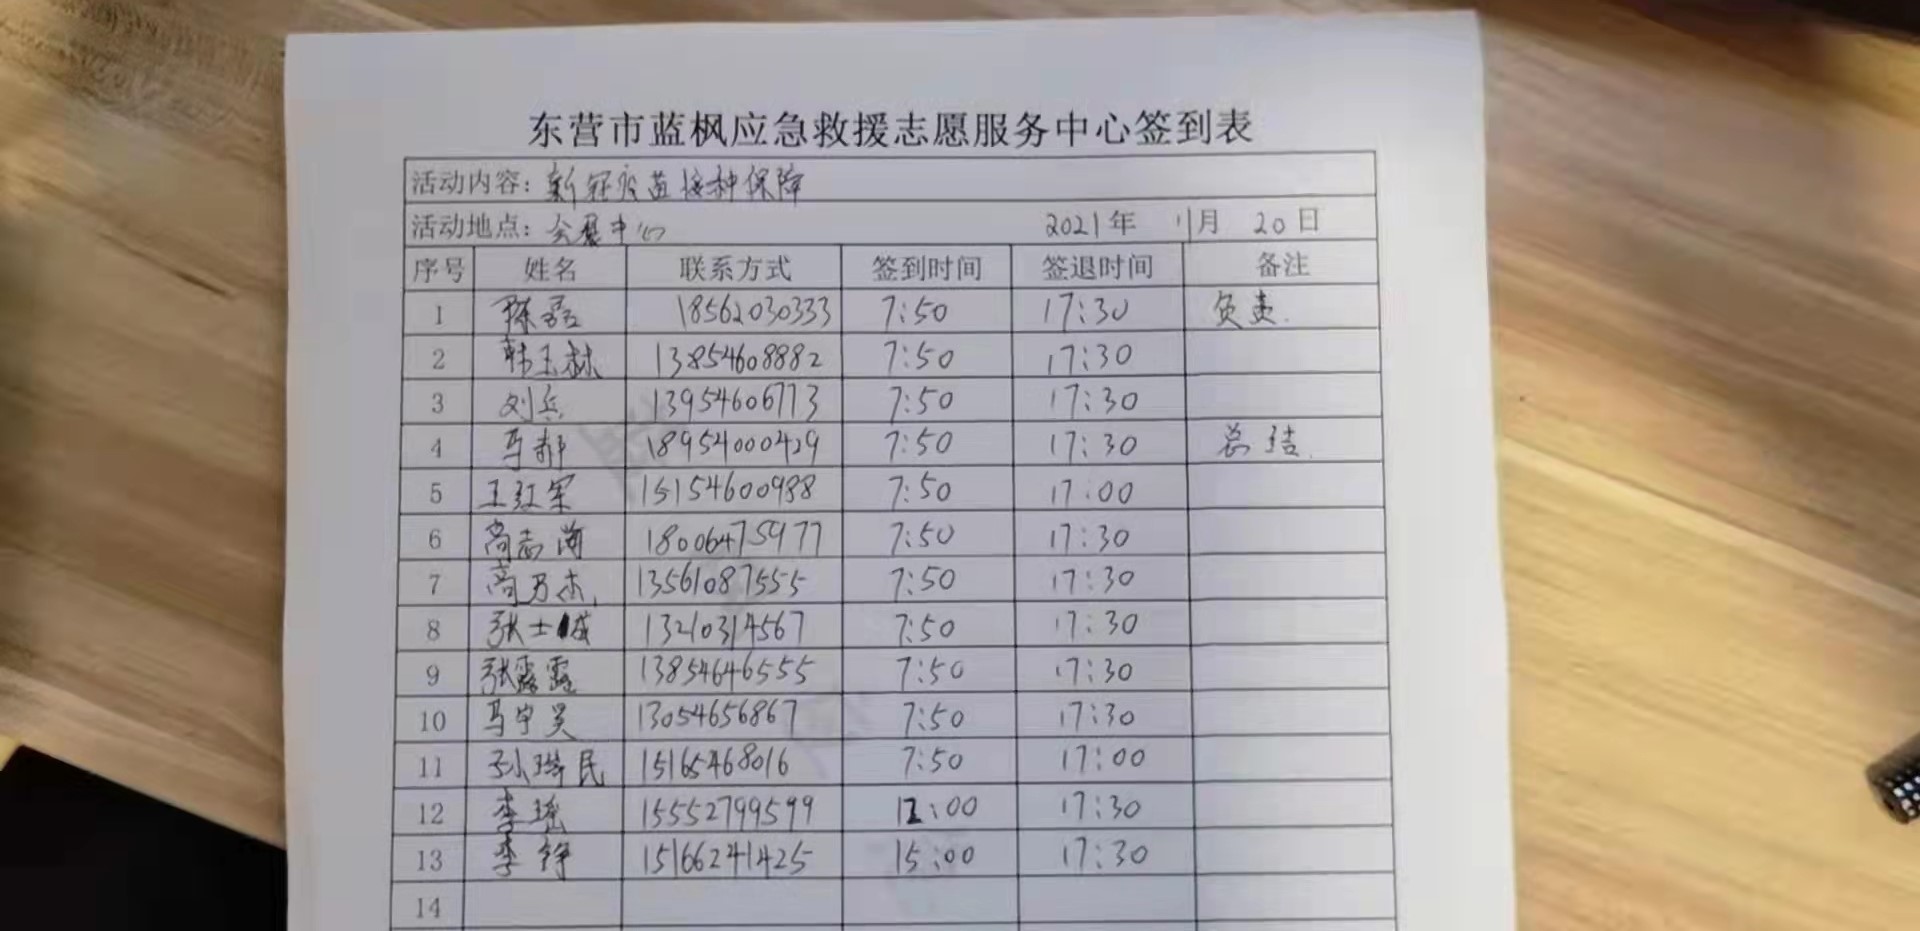 东营市蓝枫应急救援志愿服务中心签到表
活动内容：新冠疫苗接种保障
活动地点：会展中心 2021年 11月 20日
序号 姓名 联系方式 签到时间 签退时间 备注
1 陈磊 18562030333 7:50 17:30 负责.
2 韩玉林 13854608882 7:50 17:30
3 刘兵 13954606773 7:50 17:30
4 马郝 18954000429 7:50 17:30 总结.
5 王红军 15154600988 7:50 17:00
6 尚志海 18006475977 7:50 17:30
7 高万杰 13561087555 7:50 17:30
8 张士诚 13210314567 7:50 17:30
9 张露露 13854646555 7:50 17:30
10 马宁昊 13054656867 7:50 17:30
11 孙民 15165468016 7:50 17:00
12 李瑶 15552799599 12:00 17:30
13 李铮 15166241425 15:00 17:30
14